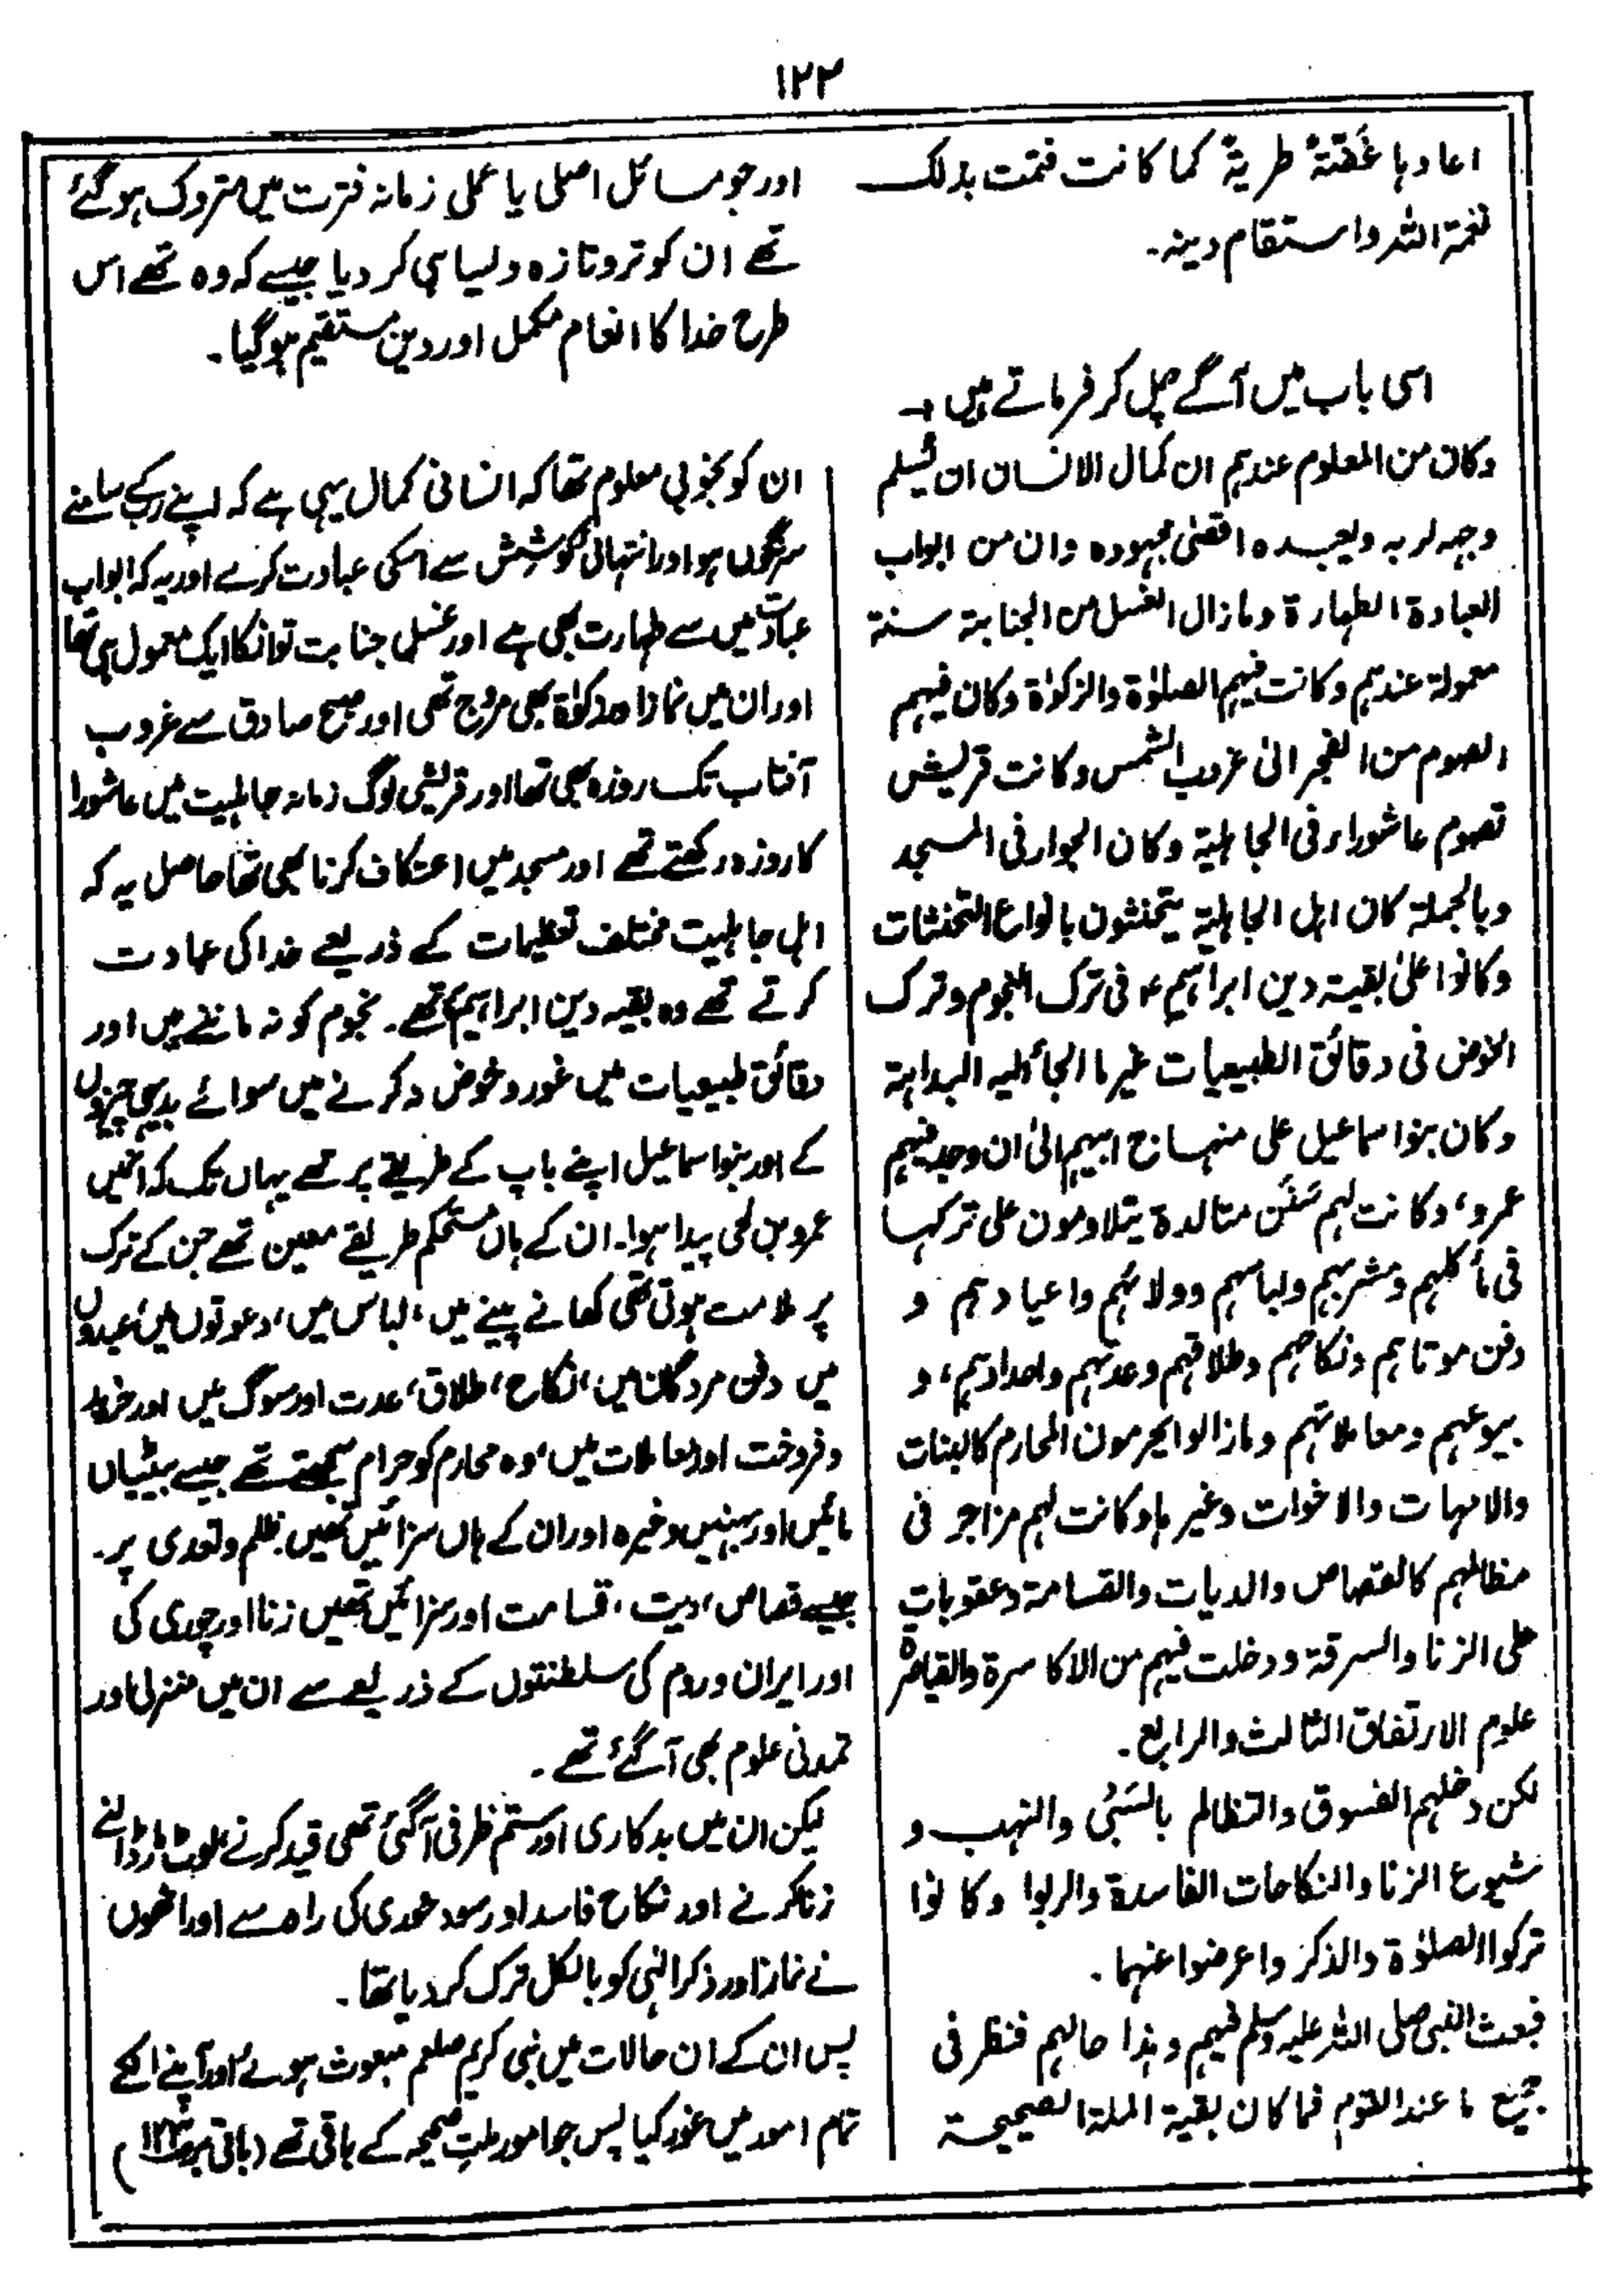 ۱۲۳
اعادہا غضۃً طریۃً کما کانت فتمت بذلک
نعمۃ اللہ واستقام دینہ۔
اور جو مسائل اصلی یا عملی زمانہ فترت میں متروک ہوگئے
تھے ان کو تروتازہ ولیسا ہی کر دیا جیسے کہ وہ تھے اس
طرح خدا کا انعام مکمل اور دین مستقیم ہوگیا۔
اسی باب میں آگے چل کر فرماتے ہیں
وکان من المعلوم عندہم ان کمال الانسان ان یسلم
وجہہ لربہ ویعبدہ اقصٰی مجہودہ وان من ابواب
العبادۃ الطہارۃ ومازال الغسل من الجنابۃ سنۃ
معمولۃ عندہم وکانت فیہم الصلوٰۃ والزکوٰۃ وکان فیہم
الصوم من الفجر الیٰ غروب الشمس وکانت قریش
تصوم عاشوراء فی الجاہلیۃ وکان الجوار فی المسجد
وبالجملۃ کان اہل الجاہلیۃ یتحنثون بانواع التحنثات
وکانوا علیٰ بقیۃ دین ابراہیم ؑ فی ترک النجوم وترک
الخوض فی دقائق الطبیعیات غیر ما الجأ الیہ البداہۃ
وکان بنو اسماعیل علی منہاج ابیہم الیٰ ان وجد فیہم
عمرو، وکانت لہم سُنَن متالدۃ یتلاومون علی ترکہا
فی مأکلہم ومشربہم ولباسہم وولائہم واعیادہم و
دفن موتاہم ونکاحہم وطلاقہم وعدتہم واحدادہم، و
بیوعہم ومعاملاتہم ومازالوا یحرمون المحارم کالبنات
والامہات والاخوات وغیرہا وکانت لہم مزاجر فی
مظالمہم کالقصاص والدیات والقسامۃ وعقوبات
علی الزنا والسرقۃ ودخلت فیہم من الاکاسرۃ والقیاصرۃ
علوم الارتفاق الثالث والرابع۔
لکن دخلہم الفسوق والتظالم بالسَّبْی والنہب و
شیوع الزنا والنکاحات الفاسدۃ والربوا وکانوا
ترکوا الصلوٰۃ والذکر واعرضوا عنہما۔
فبعث النبی صلی اللہ علیہ وسلم فیہم وہذا حالہم فنظر فی
جمیع ما عند القوم فما کان بقیۃ الملۃ الصحیحۃ
ان کو بخوبی معلوم تھا کہ انسانی کمال یہی ہے کہ اپنے رب کے سامنے
سرنگوں ہو اور انتہائی کوشش سے اسکی عبادت کرے اور یہ کہ ابواب
عبادت میں سے طہارت بھی ہے اور غسل جنابت تو انکا ایک معمول ہی تھا
اور ان میں نماز اور زکوٰۃ بھی مروج تھی اور صبح صادق سے غروب
آفتاب تک روزہ بھی تھا اور قریشی لوگ زمانہ جاہلیت میں عاشورا
کا روزہ رکھتے تھے اور مسجد میں اعتکاف کرنا بھی تھا حاصل یہ کہ
اہل جاہلیت مختلف تعلیمات کے ذریعے خدا کی عبادت
کرتے تھے وہ بقیہ دین ابراہیم پر تھے۔ نجوم کو نہ ماننے میں اور
دقائق طبیعیات میں غور و خوض نہ کرنے میں سوائے بدیہی چیزوں
کے اور بنو اسماعیل اپنے باپ کے طریقے پر تھے یہاں تک کہ انھیں
عمرو بن لحی پیدا ہوا۔ ان کے ہاں مستحکم طریقے معین تھے جن کے ترک
پر ملامت ہوتی تھی کھانے پینے میں، لباس میں، دعوتوں میں، عیدوں
میں دفن مردگان میں، نکاح، طلاق، عدت اور سوگ میں اور خرید
و فروخت اور معاملات میں، وہ محارم کو حرام سمجھتے تھے جیسے بیٹیاں
مائیں اور بہنیں وغیرہ اور ان کے ہاں سزائیں تھیں ظلم و تعدی پر۔
جیسے قصاص، دیت، قسامت اور سزائیں تھیں زنا اور چوری کی
اور ایران و روم کی سلطنتوں کے ذریعے سے ان میں منزلی اور
تمدنی علوم بھی آگئے تھے۔
لیکن ان میں بدکاری اور ستم ظرفی آگئی تھی قید کرنے لوٹ مار ڈالنے
زنا کرنے اور نکاح فاسد اور سود خوری کی راہ سے اور انھوں
نے نماز اور ذکر الٰہی کو بالکل ترک کر دیا تھا۔
پس ان کے ان حالات میں نبی کریم صلعم مبعوث ہوئے اور آپنے انکے
تمام امور میں غور کیا پس جو امور ملتِ صحیحہ کے باقی تھے (باقی بر